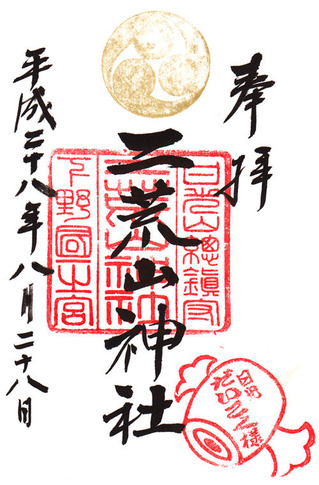 奉拝
日光山總鎮守
二荒山神社
下野國一之宮
平成二十八年八月二十八日
日光
だいこく様